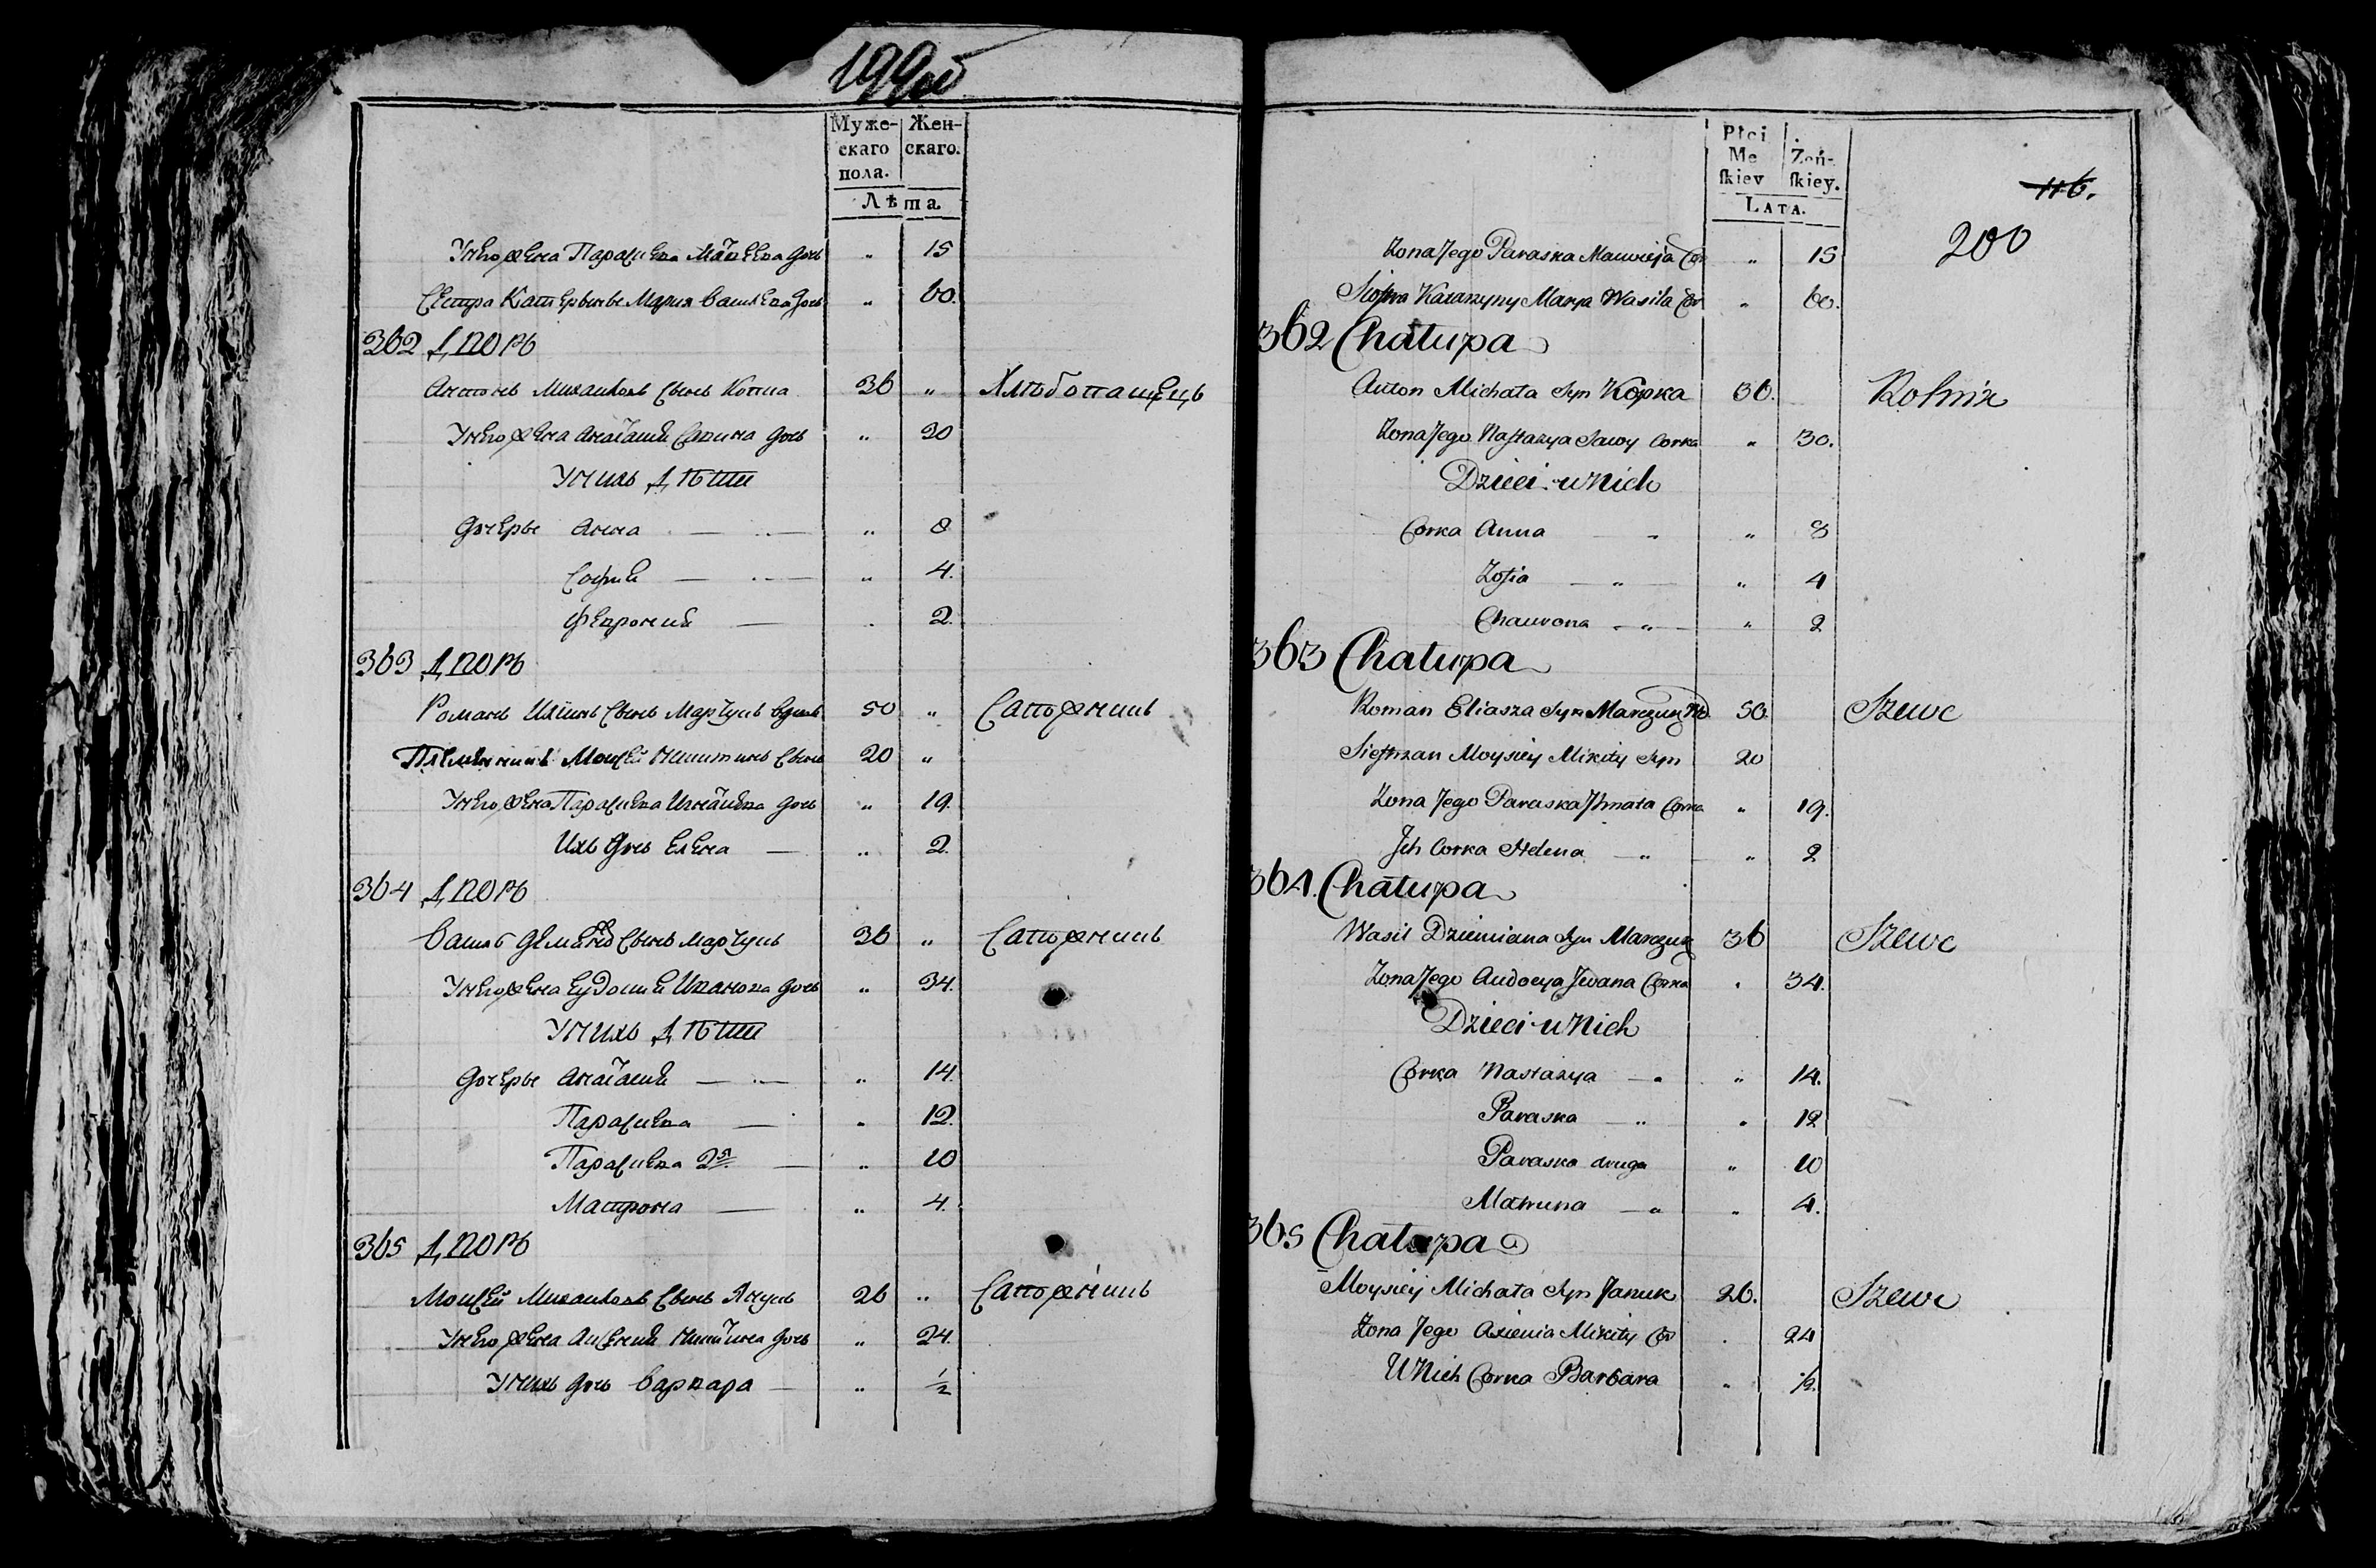 199об
Муже- Жен-
скаго скаго.
пола.
Лѣта.
У него жена Парасцева Матвеева дочь " 15
Сестра Катерынъ Мария Васильева дочь " 60.
362 Дворъ
Антонъ Михайловъ сынъ Копка 36 " Хлѣбопашецъ
У него жена Анастасия Савина дочь " 30
У нихъ дѣти
Дочеры Анна " 8
София " 4.
Феврония " 2.
363 Дворъ
Романъ Илїинъ сынъ Марчукъ вдовъ 50 " Сапожникъ
Племянникъ Моисей Никитинъ сынъ 20 "
У него жена Парасцева Игнатьева дочь " 19.
Ихъ дочь Елена " 2.
364 Дворъ
Василь Демьяновъ сынъ Марчукъ 36 " Сапожникъ
У него жена Евдокия Иванова дочь " 34.
У нихъ дѣти
Дочеры Анастасия " 14.
Парасцева " 12.
Парасцева 2я " 10
Матрона " 4.
365 Дворъ
Моисей Михайловъ сынъ Янукъ 26 " Сапожникъ
У него жена Аксения Никитина дочь " 24.
У нихъ дочь Варвара " ½
Płci
Mę Żeń-
skiey skiey.
LATA.
116.
200
Zona Jego Paraska Maweieja Cor " 15
Siostra Katarzyny Marya Wasila Cor " 60.
362 Chałupa
Anton Michała Syn Kopka 36. Rolnik
Zona Jego Nastazya Sawy Corka " 30.
Dzieci u Nich
Corka Anna " 8
Zofia " 4
Chawrona " 2
363 Chałupa
Roman Eliasza Syn Marczuk Wd. 50. Szewc
Siestrzan Moysiey Mikity Syn 20
Zona Jego Paraska Jhnata Corka " 19.
Jch Corka Helena " 2
364. Chałupa
Wasil Dziemiana Syn Marczuk 36 Szewc
Zona Jego Audocya Jwana Corka " 34.
Dzieci u Nich
Corka Nastazya " 14.
Paraska " 12
Paraska druga " 10
Matruna " 4.
365 Chałupa
Moysiey Michała Syn Januk 26. Szewc
Zona Jego Axienia Mikity Cor " 24
U Nich Corka Barbara " ½.